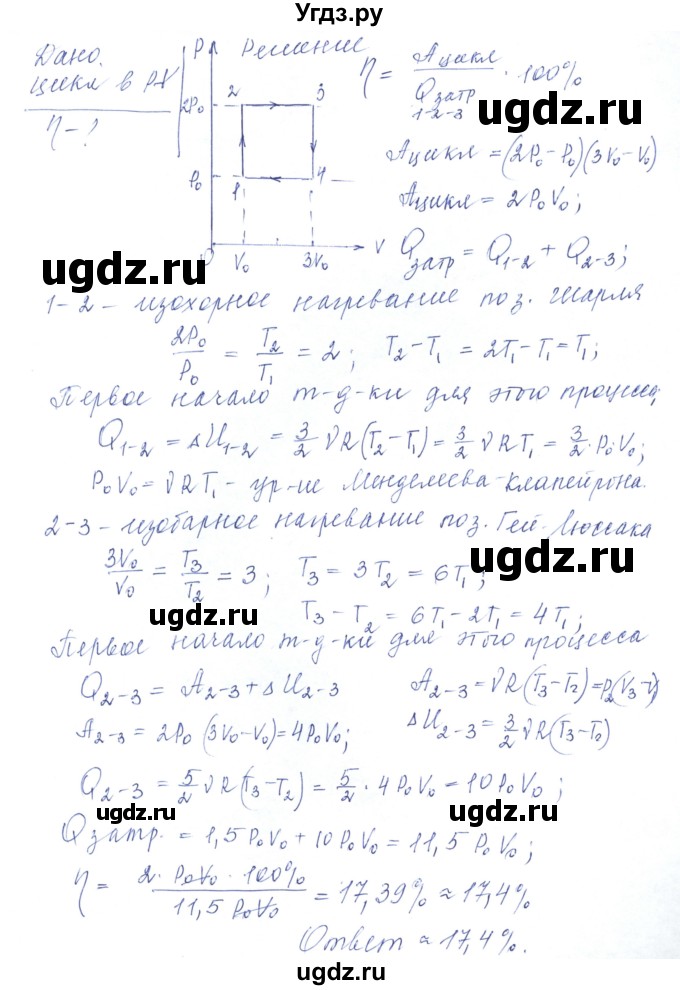 Угдз.ру
Дано.
цикл в PV
η - ?
Решение
P
2P₀
P₀
2
3
1
4
0
V₀
3V₀
V
η = Aцикл / Qзатр 1-2-3 · 100%
Aцикл = (2P₀ - P₀)(3V₀ - V₀)
Aцикл = 2P₀V₀;
Qзатр = Q₁₋₂ + Q₂₋₃;
ugdz.ru ugdz.ru
1-2 - изохорное нагревание по з. Шарля
2P₀/P₀ = T₂/T₁ = 2; T₂ - T₁ = 2T₁ - T₁ = T₁;
Первое начало т-д-ки для этого процесса;
ugdz.ru
Q₁₋₂ = ΔU₁₋₂ = 3/2 νR(T₂ - T₁) = 3/2 νRT₁ = 3/2 · P₀V₀;
P₀V₀ = νRT₁ - ур-ие Менделеева-Клапейрона.
2-3 - изобарное нагревание по з. Гей-Люссака
ugdz.ru
3V₀/V₀ = T₃/T₂ = 3; T₃ = 3T₂ = 6T₁;
ugdz.ru ugdz.ru
T₃ - T₂ = 6T₁ - 2T₁ = 4T₁;
Первое начало т-д-ки для этого процесса
Q₂₋₃ = A₂₋₃ + ΔU₂₋₃
A₂₋₃ = νR(T₃ - T₂) = P₂(V₃ - V
A₂₋₃ = 2P₀(3V₀ - V₀) = 4P₀V₀;
ΔU₂₋₃ = 3/2 νR(T₃ - T₂)
ugdz.ru
Q₂₋₃ = 5/2 νR(T₃ - T₂) = 5/2 · 4P₀V₀ = 10P₀V₀;
ugdz.ru ugdz.ru
Qзатр. = 1,5P₀V₀ + 10P₀V₀ = 11,5P₀V₀;
η = 2 · P₀V₀ · 100% / 11,5P₀V₀ = 17,39% ≈ 17,4%
ugdz.ru
Ответ ≈ 17,4%.
ugdz.ru